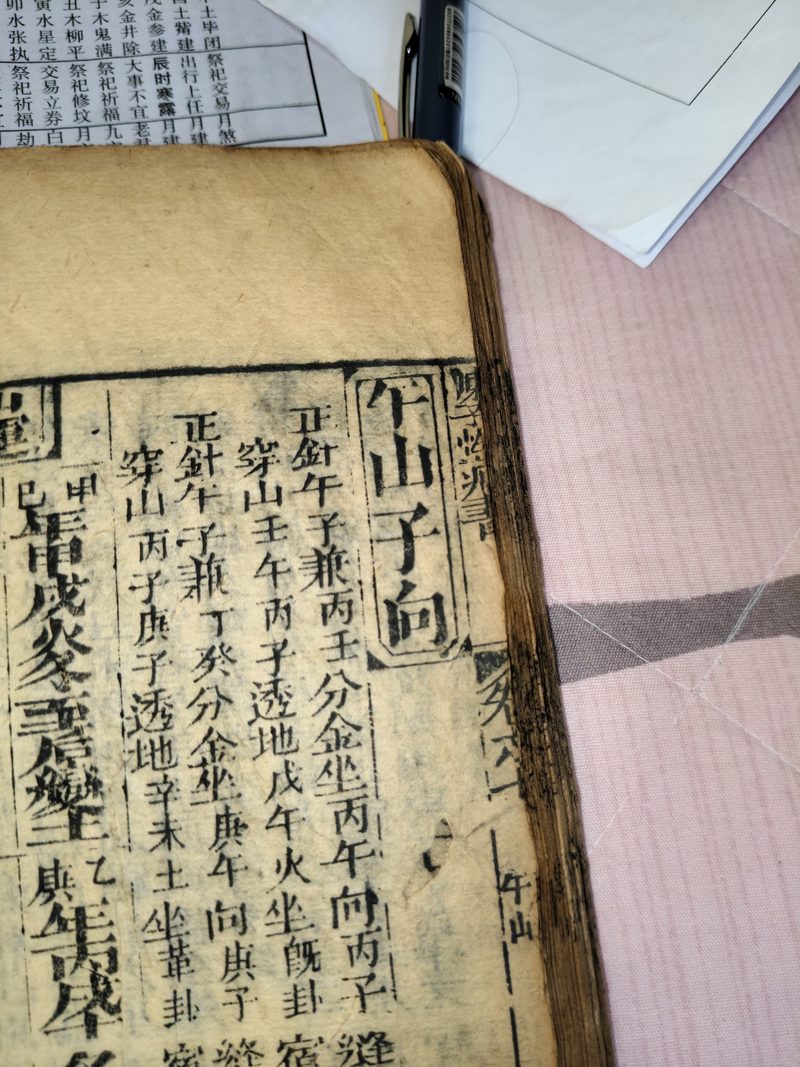 卷六
午山
午山子向
正針午子兼丙壬分金坐丙午向丙子縫
穿山壬午丙子透地戊午火坐既卦宿
正針午子兼丁癸分金坐庚午向庚子縫
穿山丙子庚子透地辛未土坐革卦宿
甲己年甲戌
變土
乙庚年丙戌
土毕闭祭祀交易月煞
土觜建出行上任月建
金参建辰时寒露月建
亥金井除大事不宜老君
子木鬼满祭祀祈福九
丑木柳平祭祀修坟月
寅水星定交易立券百
卯水张执祭祀祈福劫